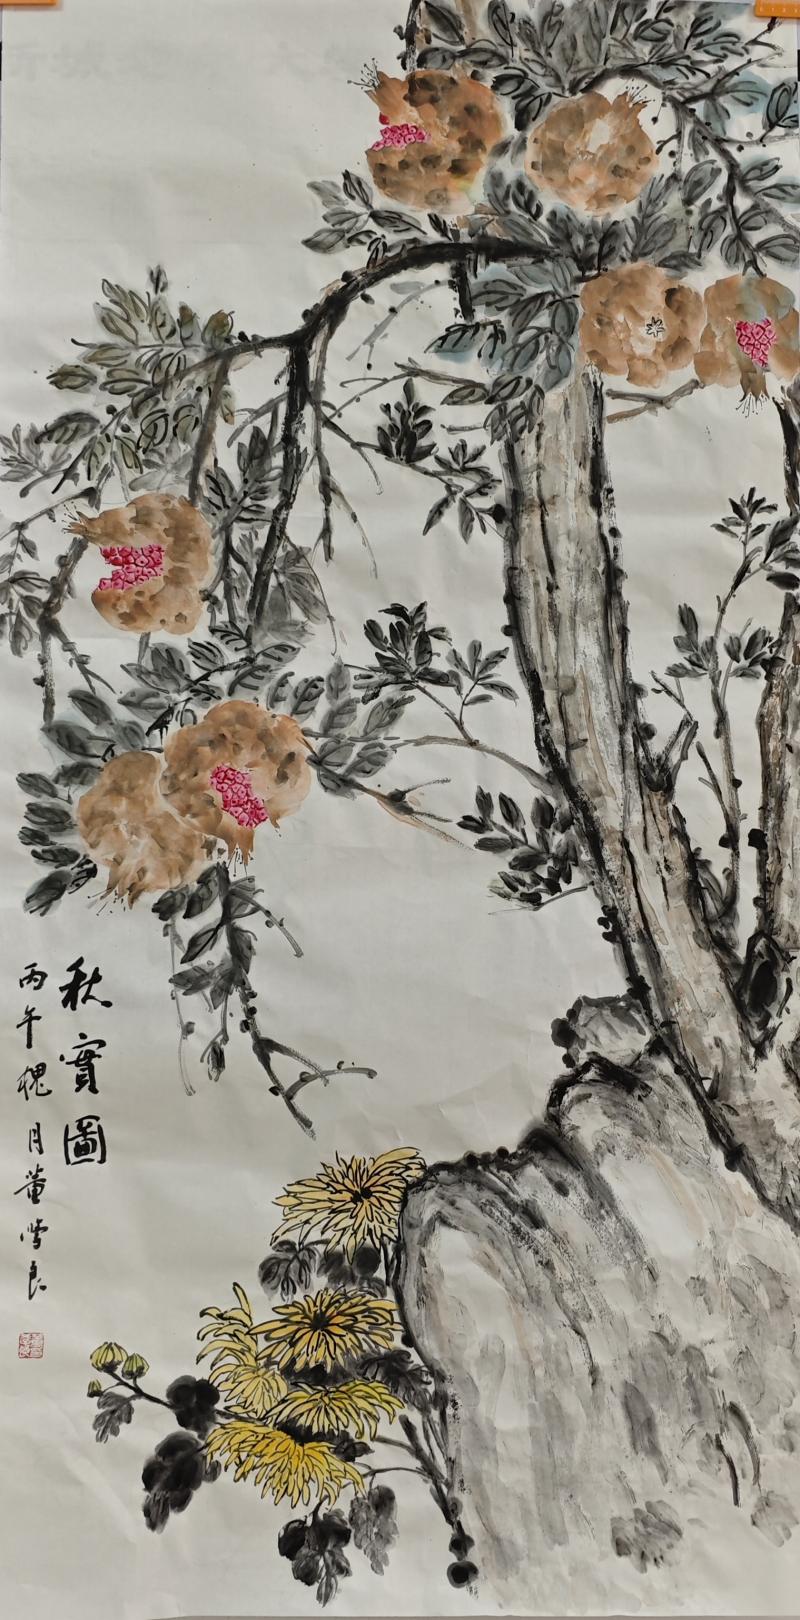 秋實圖
丙午槐月董雪良